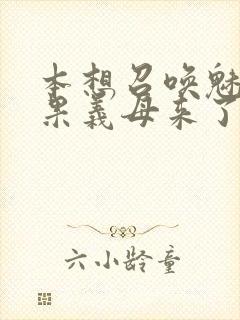 本想召唤魅
果义母来了
六小龄童